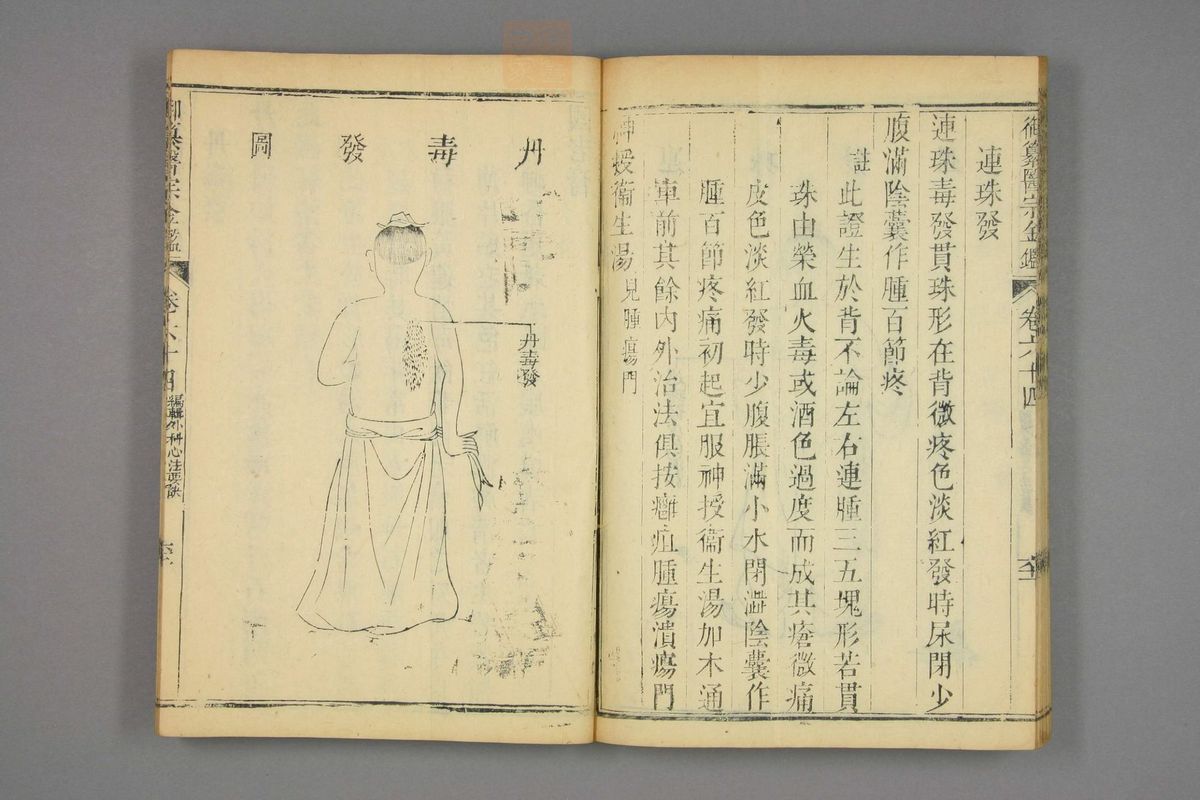 御纂醫宗金鑑
卷六十四
連珠發
連珠毒發貫珠形在背微疼色淡紅發時尿閉少
腹滿陰囊作腫百節疼
註
此證生於背不論左右連腫三五塊形若貫
珠由榮血火毒或酒色過度而成其瘡微痛
皮色淡紅發時少腹脹滿小水閉澀陰囊作
腫百節疼痛初起宜服神授衞生湯加木通
車前其餘內外治法俱按癰疽腫瘍潰瘍門
神授衞生湯見腫瘍門
丹毒發圖
丹毒發
御纂醫宗金鑑
卷六十四
編輯外科心法要訣